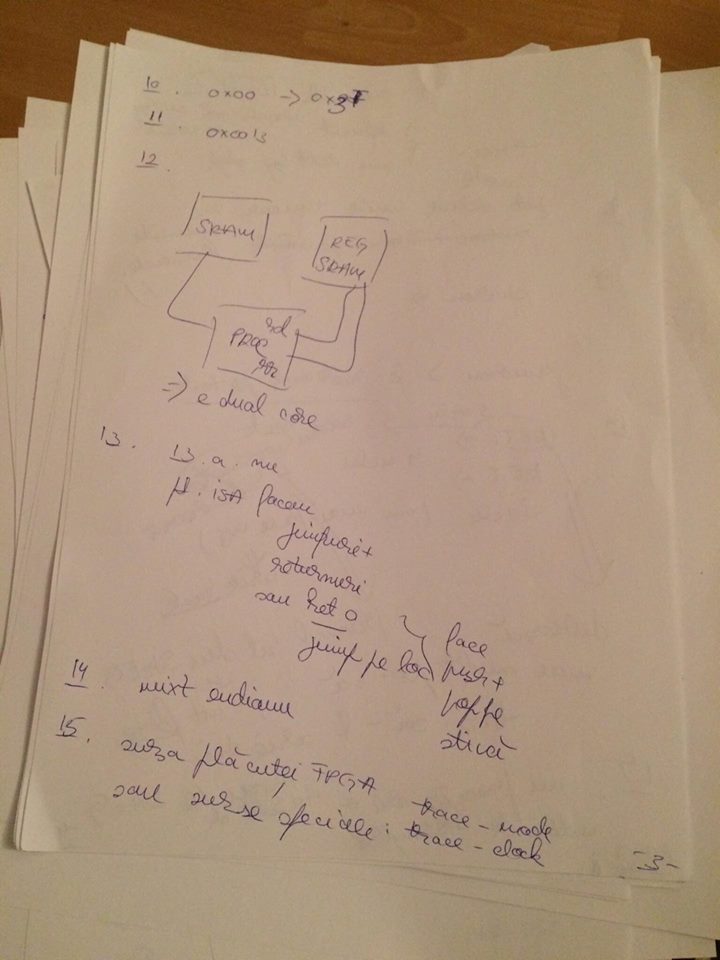 10. 0x00 -> 0x3F
11. 0x0013
12.
SRAM
REG
SRAM
PROC
rd
rr
=> e dual core
13. 13.a. nu
pt. ISA facem
jumpuri +
returnuri
sau ret 0
jump pe loc
face
push +
pop pe
stivă
14. mixt endian
15. sursa plăcuței FPGA
sau surse speciale: trace-mode
trace-clock
-3-